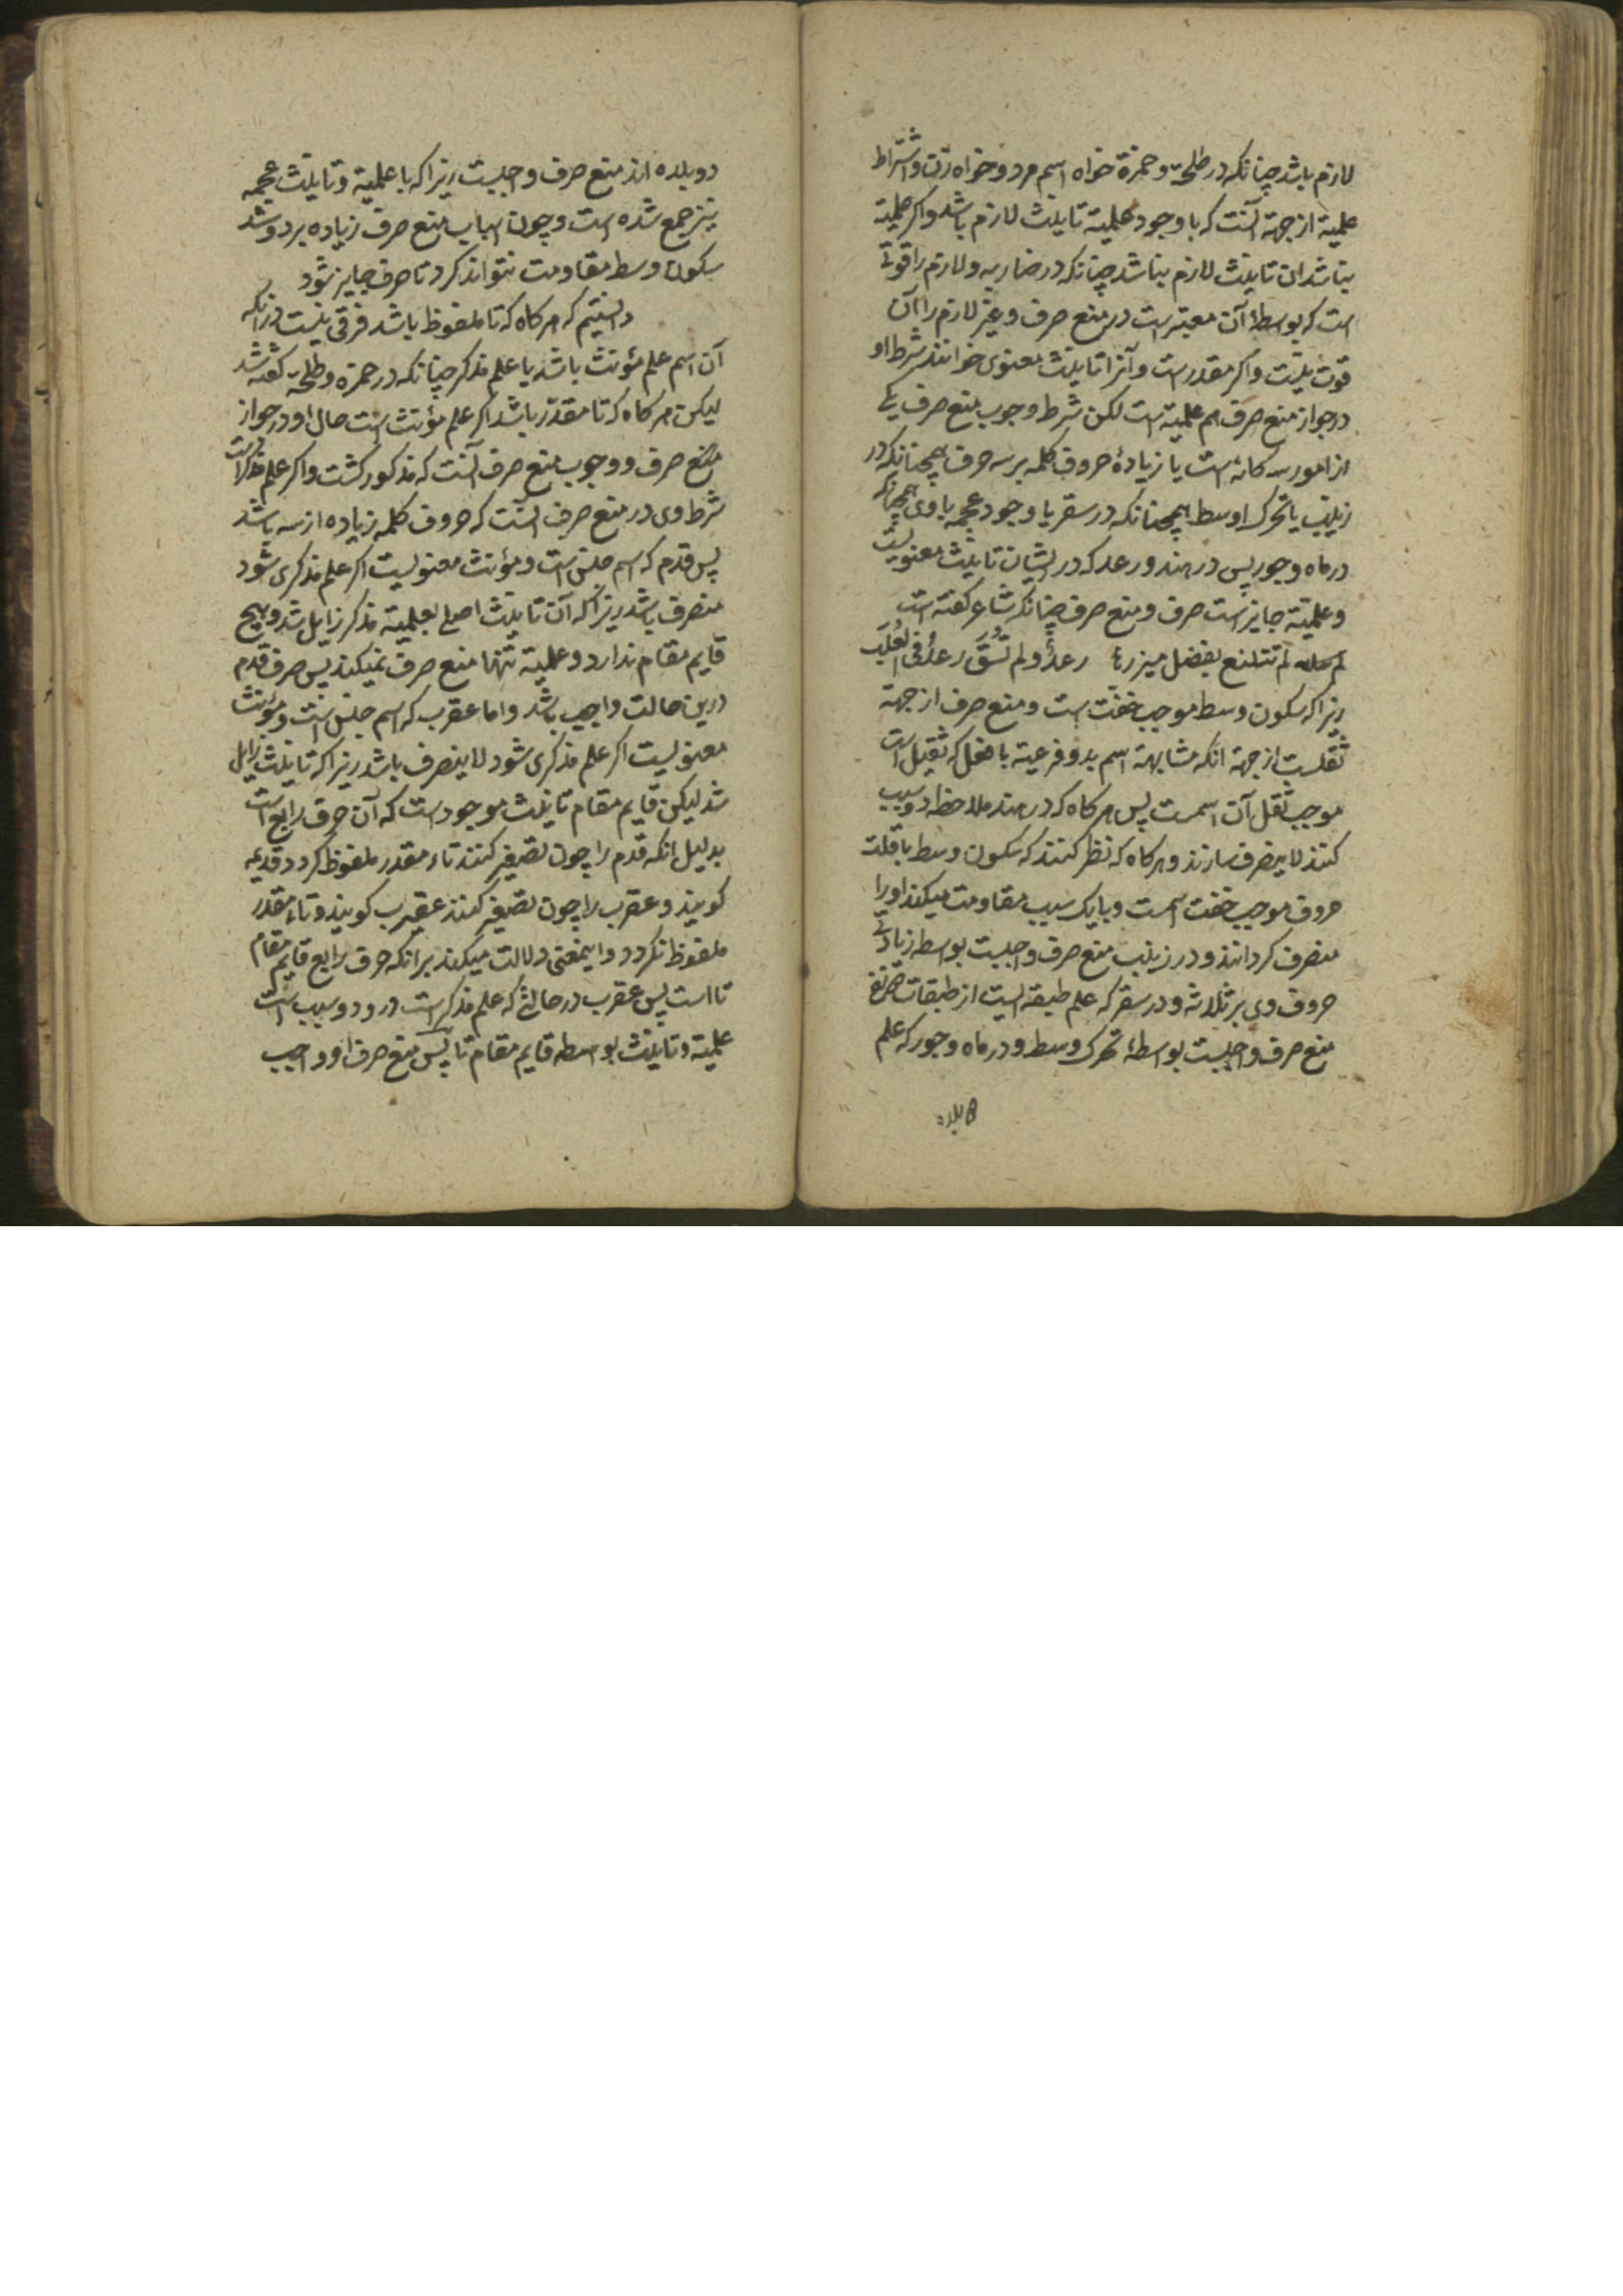 لازم باشد چنانکه در طلحة و حمزة خواه اسم مرد و خواه زن و اشتراط
علمیة از جهة آنست که با وجود علمیة تانیث لازم باشد و اکر علمیة
نباشد ان تانیث لازم نباشد چنانکه در ضاربه و لازم را قوتی
است که بواسطهٔ آن معتبر است در منع صرف و غیر لازم را آن
قوت نیست و اکر مقدر است و آنرا تانیث معنوی خوانند شرط او
در جواز منع صرف هم علمیة است لکن شرط وجوب منع صرف یکی
از امور سه کانه است یا زیادهٔ حروف کلمه بر سه حرف همچنانکه در
زینب یا تحرک اوسط همچنانکه در سقر یا وجود عجمه با وی همچنانکه
در ماه و جور پس در هند و رعد که در ایشان تانیث معنویست
و علمیّة جایز است صرف و منع صرف چنانکه شاعر کفته است
لم تتلفع بفضل میزرها رعدٌ و لم تُسقَ رعدُ فی العُلَب
زیرا که سکون وسط موجب خفت است و منع صرف از جهة
ثقلست از جهة انکه مشابهة اسم بدو فرعیة با فعل که ثقیل است
موجب ثقل آن اسمست پس هرکاه که در هند ملاحظه دو سبب
کنند لاینصرف سازند و هرکاه که نظر کنند که سکون وسط با قلت
حروف موجب خفت اسمست و با یک سبب مقاومت میکند او را
منصرف کردانند و در زینب منع صرف واجبست بواسطه زیادتی
حروف وی بر ثلاثه و در سقر که علم طبقه ایست از طبقات جهنم
منع صرف واجبست بواسطهٔ تحرک وسط و در ماه و جور که علم
بلده
دو بلده اند منع صرف واجبست زیرا که با علمیة و تانیث عجمه
نیز جمع شده است و چون اسباب منع صرف زیاده بر دو شد
سکون وسط مقاومت نتواند کرد تا صرف جایز شود
دانستیم که هرکاه که تا ملفوظ باشد فرقی نیست در انکه
آن اسم علم مؤنث باشد یا علم مذکر چنانکه در حمزه و طلحة کفته شد
لیکن هرکاه که تا مقدّر باشد اکر علم مؤنث است حال او در جواز
منع صرف و وجوب منع صرف آنست که مذکور کشت و اکر علم مذکر است
شرط وی در منع صرف انست که حروف کلمه زیاده از سه باشد
پس قدم که اسم جنس است و مؤنث معنویست اکر علم مذکری شود
منصرف باشد زیرا که آن تانیث اصلی بعلمیة مذکر زایل شد و هیچ
قایم مقام ندارد و علمیة تنها منع صرف نمیکند پس صرف قدم
درین حالت واجب باشد و اما عقرب که اسم جنس است و مؤنث
معنویست اکر علم مذکری شود لاینصرف باشد زیرا که تانیث زایل
شد لیکن قایم مقام تانیث موجود است که آن حرف رابع است
بدلیل انکه قدم را چون تصغیر کنند تاء مقدر ملفوظ کردد قدیمه
کویند و عقرب را چون تصغیر کنند عقیرب کویند و تاء مقدر
ملفوظ نکردد و اینمعنی دلالت میکند بر انکه حرف رابع قایم مقام
تا است پس عقرب در حالتی که علم مذکر است درو دو سبب است
علمیة و تانیث بواسطه قایم مقام تا پس منع صرف او واجب